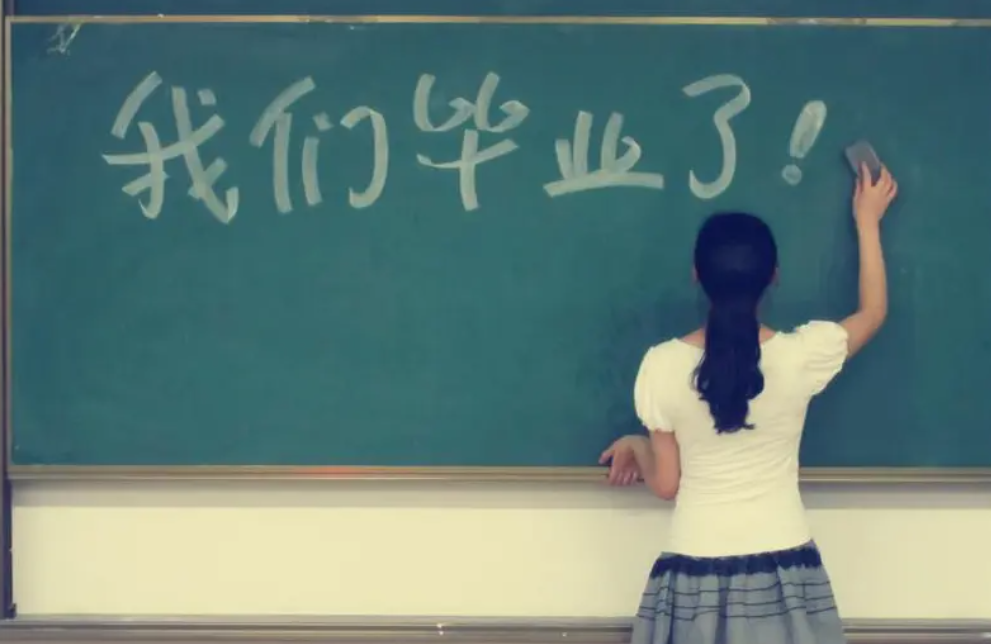 我们毕业了!